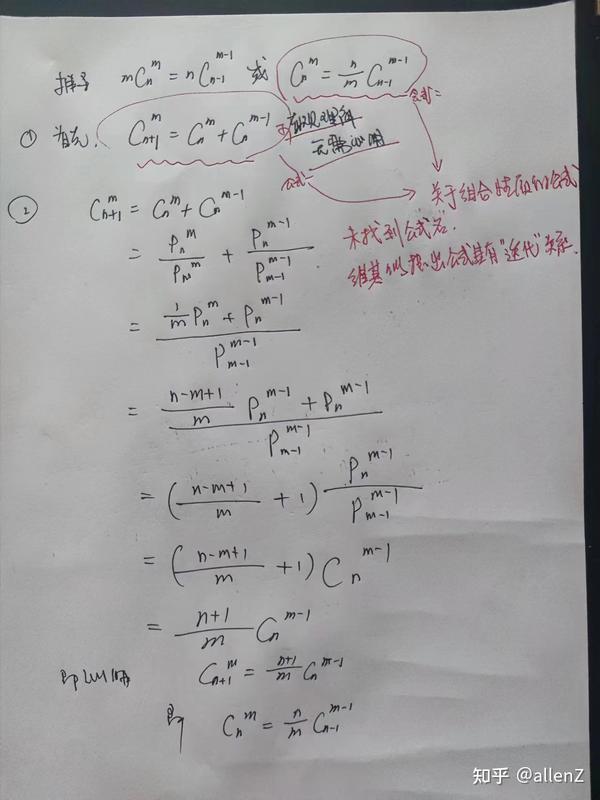 推导 mC_n^m = nC_{n-1}^{m-1} 或 C_n^m = \frac{n}{m} C_{n-1}^{m-1}
公式二
① 首先, C_{n+1}^m = C_n^m + C_n^{m-1} 可直观理解
无需证明
公式一
关于组合性质的公式
未找到公式名.
② C_{n+1}^m = C_n^m + C_n^{m-1}
= \frac{P_n^m}{P_m^m} + \frac{P_n^{m-1}}{P_{m-1}^{m-1}}
= \frac{\frac{1}{m} P_n^m + P_n^{m-1}}{P_{m-1}^{m-1}}
= \frac{\frac{n-m+1}{m} P_n^{m-1} + P_n^{m-1}}{P_{m-1}^{m-1}}
= (\frac{n-m+1}{m} + 1) \frac{P_n^{m-1}}{P_{m-1}^{m-1}}
= (\frac{n-m+1}{m} + 1) C_n^{m-1}
= \frac{n+1}{m} C_n^{m-1}
即证明 C_{n+1}^m = \frac{n+1}{m} C_n^{m-1}
即 C_n^m = \frac{n}{m} C_{n-1}^{m-1}
知乎 @allenZ